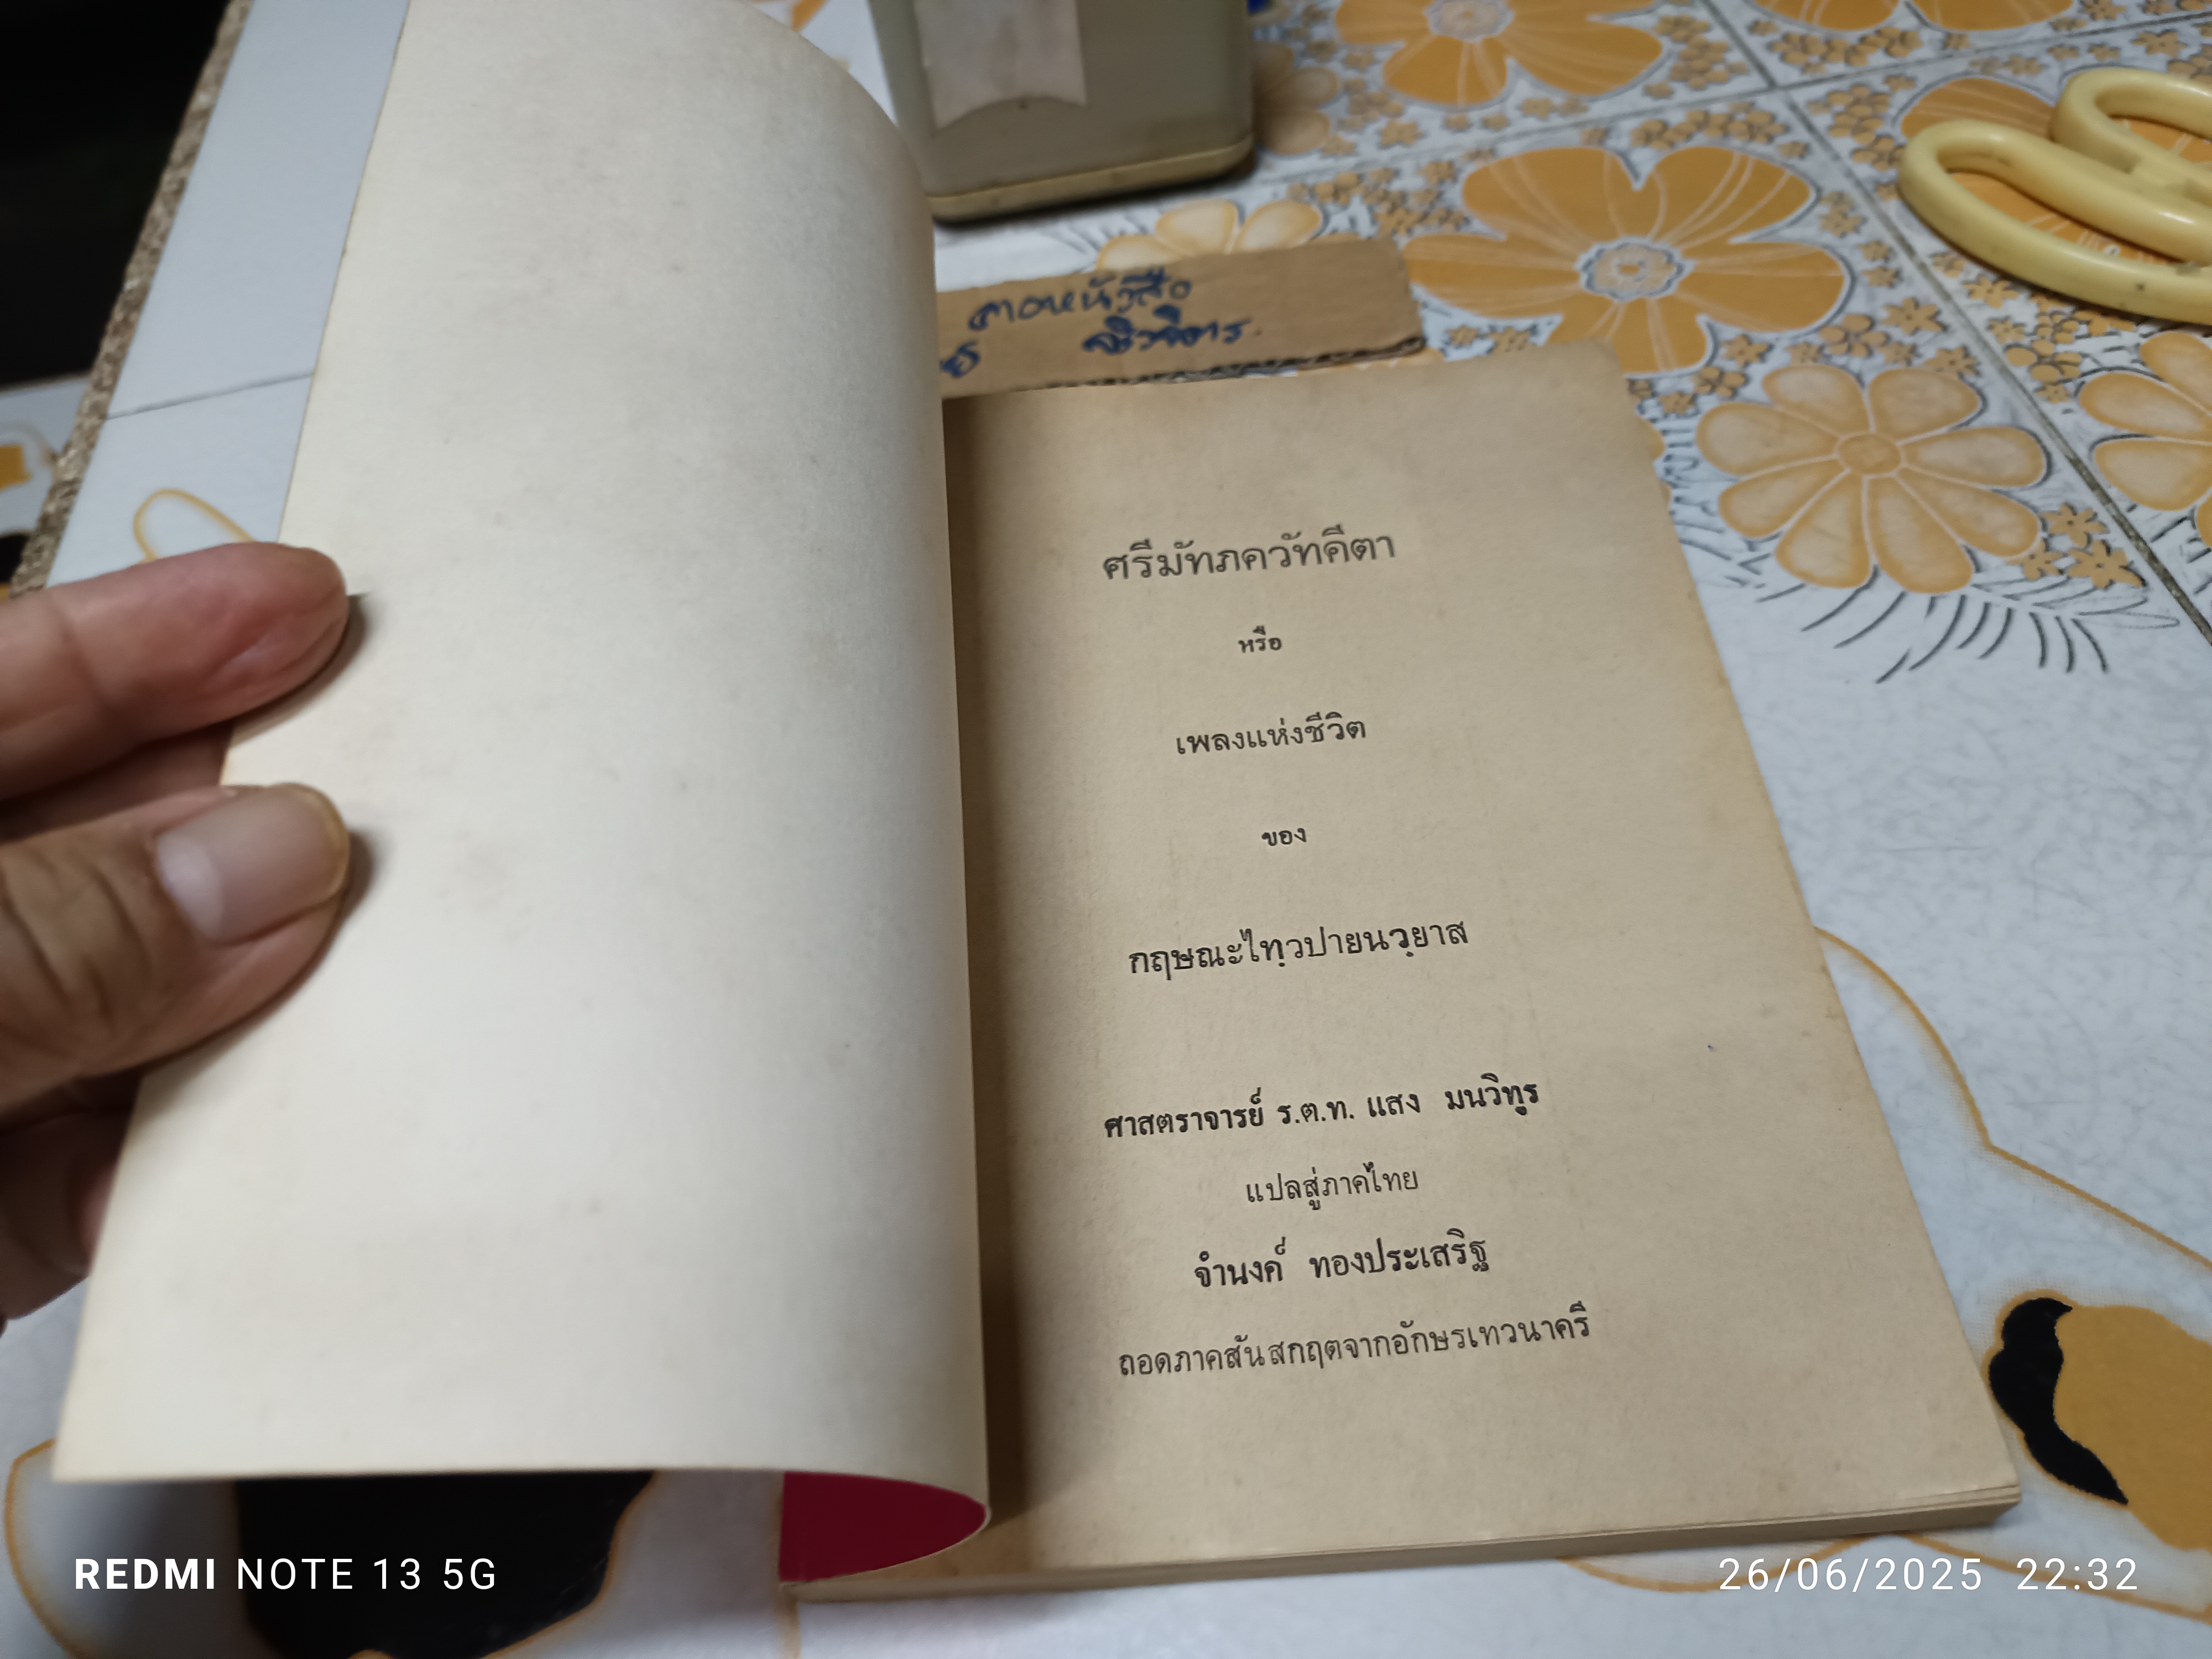 ศรีมัทภควัทคีตา
หรือ
เพลงแห่งชีวิต
ของ
กฤษณะไทฺวปายนวฺยาส
ศาสตราจารย์ ร.ต.ท. แสง มนวิทูร
แปลสู่ภาคไทย
จำนงค์ ทองประเสริฐ
ถอดภาคสันสกฤตจากอักษรเทวนาครี
REDMI NOTE 13 5G
26/06/2025 22:32